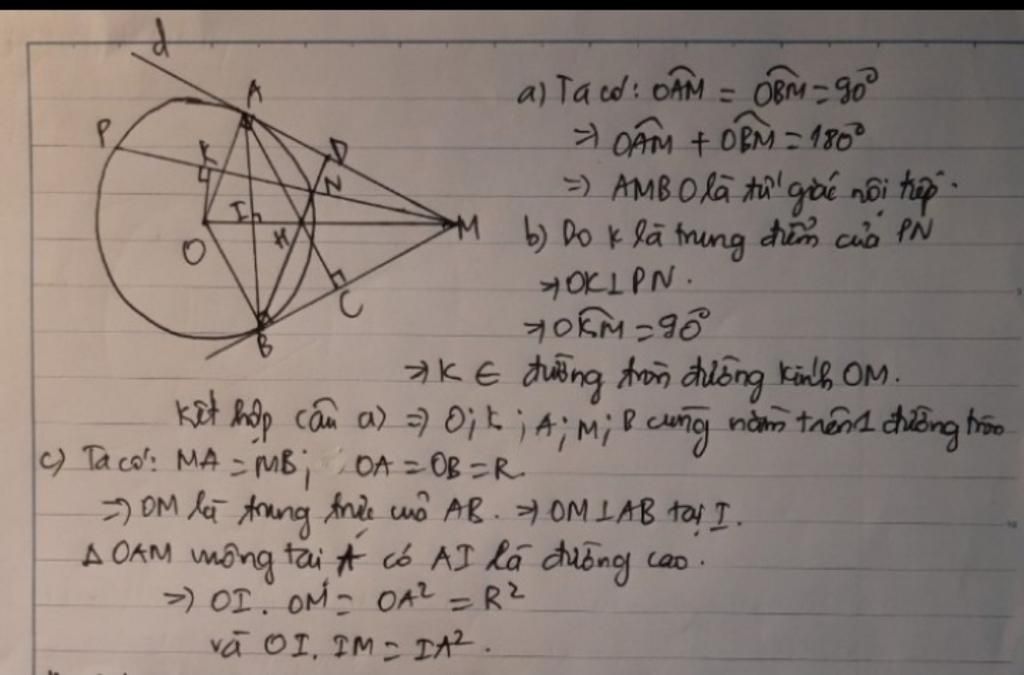 d
A
P
K
D
N
I
H
M
O
C
B
a) Ta có: OAM = OBM = 90°
=> OAM + OBM = 180°
=> AMBO là tứ giác nội tiếp.
b) Do K là trung điểm của PN
=> OK⊥PN.
=> OKM = 90°
=> K ∈ đường tròn đường kính OM.
Kết hợp câu a) => O; K; A; M; B cùng nằm trên 1 đường tròn
c) Ta có: MA = MB; OA = OB = R
=> OM là trung trực của AB. => OM⊥AB tại I.
Δ OAM vuông tại A có AI là đường cao.
=> OI. OM = OA² = R²
và OI. IM = IA².